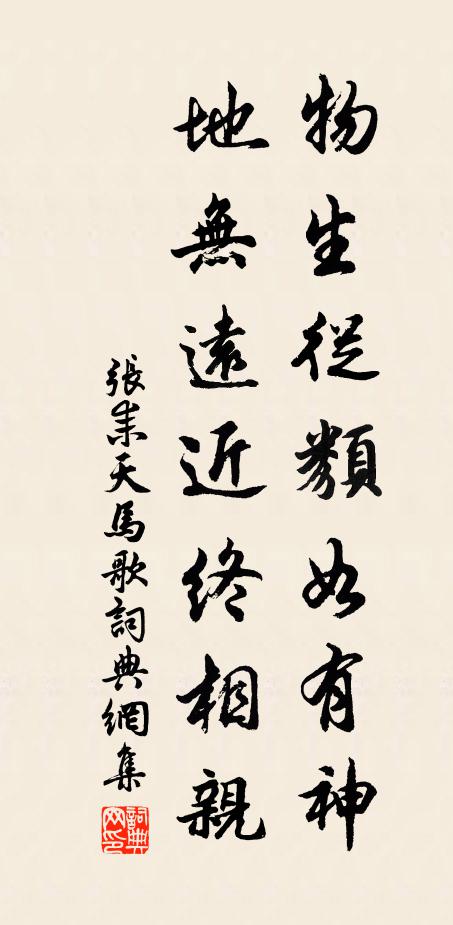 物生從類如有神
地無遠近終相親
張耒天馬歌詞典網集
詞典網印